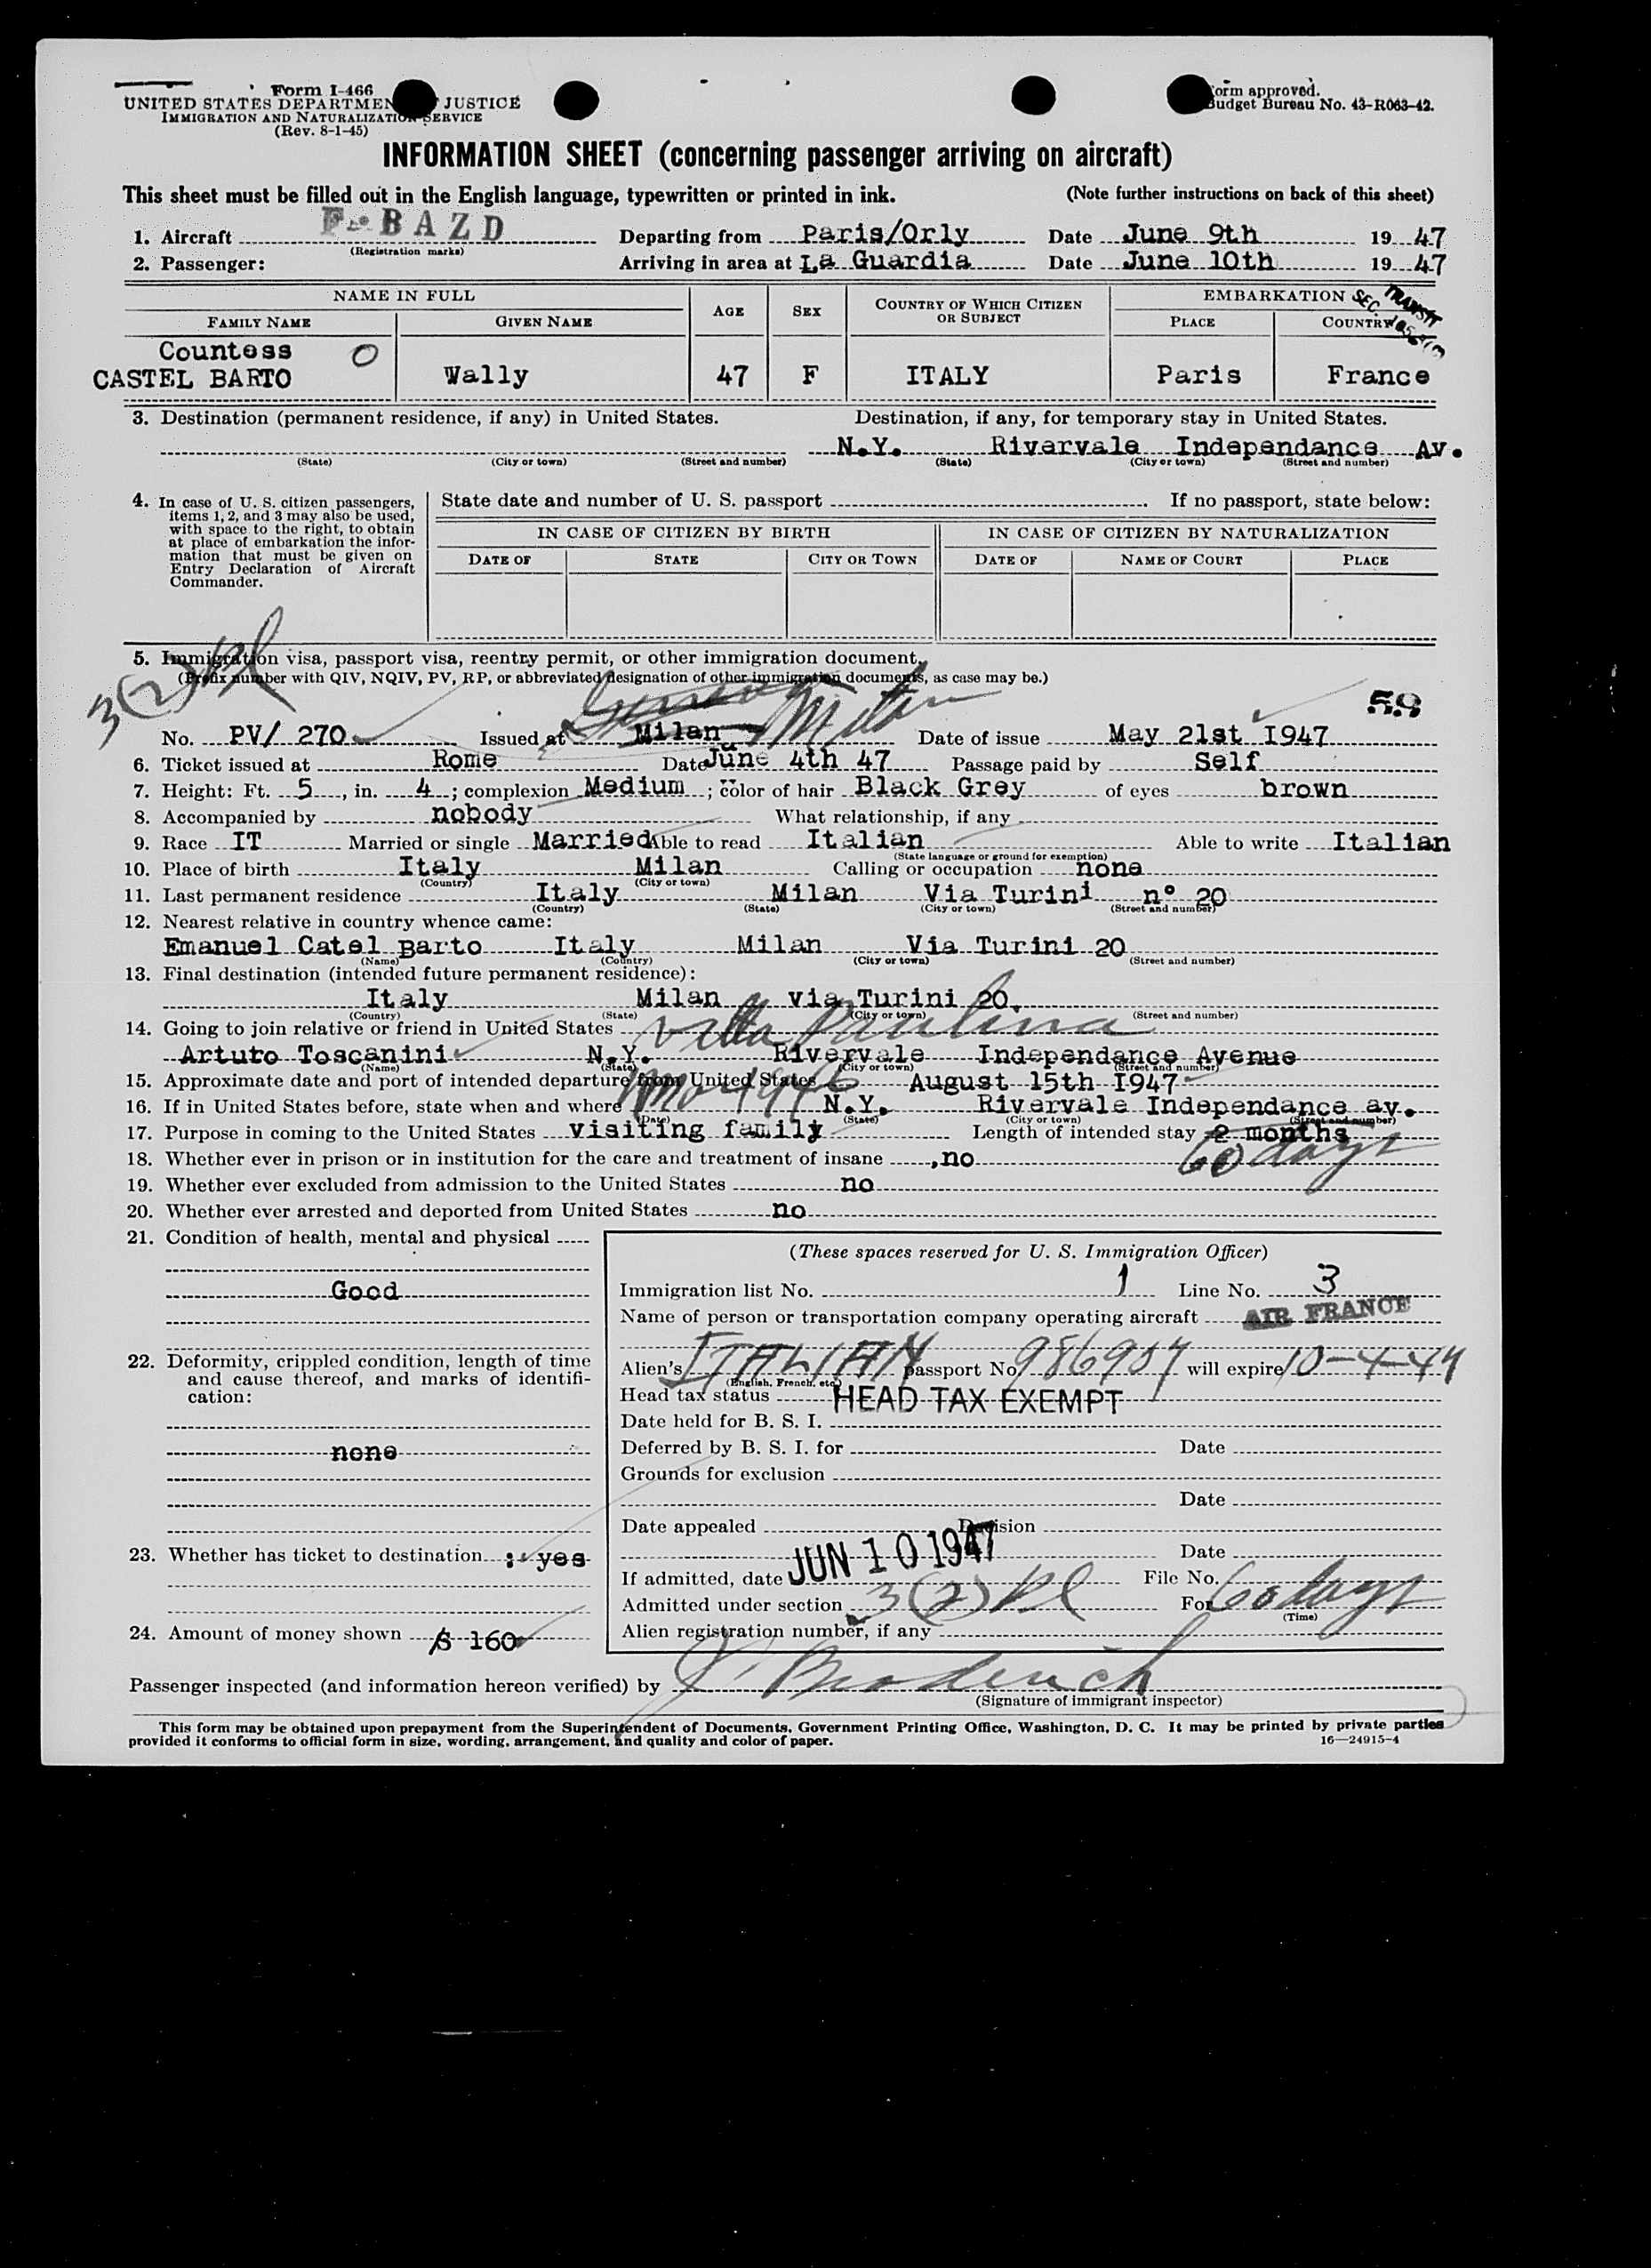 Form I-466
UNITED STATES DEPARTMEN JUSTICE
IMMIGRATION AND NATURALIZATION SERVICE
(Rev. 8-1-45)
orm approved.
Budget Bureau No. 43-R063-42.
INFORMATION SHEET (concerning passenger arriving on aircraft)
This sheet must be filled out in the English language, typewritten or printed in ink. (Note further instructions on back of this sheet)
1. Aircraft F-BAZD Departing from Paris/Orly Date June 9th 19 47
(Registration marks)
2. Passenger: Arriving in area at La Guardia Date June 10th 19 47
NAME IN FULL AGE SEX COUNTRY OF WHICH CITIZEN OR SUBJECT EMBARKATION SEC. TRANSIT
FAMILY NAME GIVEN NAME PLACE COUNTRY
Countess O
CASTEL BARTO Wally 47 F ITALY Paris France
3. Destination (permanent residence, if any) in United States. Destination, if any, for temporary stay in United States.
N.Y. Rivervale Independance Av.
(State) (City or town) (Street and number) (State) (City or town) (Street and number)
4. In case of U. S. citizen passengers, items 1, 2, and 3 may also be used, with space to the right, to obtain at place of embarkation the information that must be given on Entry Declaration of Aircraft Commander.
State date and number of U. S. passport If no passport, state below:
IN CASE OF CITIZEN BY BIRTH IN CASE OF CITIZEN BY NATURALIZATION
DATE OF STATE CITY OR TOWN DATE OF NAME OF COURT PLACE
3(2)
5. Immigration visa, passport visa, reentry permit, or other immigration document.
(Prefix number with QIV, NQIV, PV, RP, or abbreviated designation of other immigration documents, as case may be.)
59
Milan
No. PV/ 270 Issued at Milan Date of issue May 21st I947
6. Ticket issued at Rome Date June 4th 47 Passage paid by Self
7. Height: Ft. 5, in. 4; complexion Medium; color of hair Black Grey of eyes brown
8. Accompanied by nobody What relationship, if any
9. Race IT Married or single Married Able to read Italian Able to write Italian
(State language or ground for exemption)
10. Place of birth Italy Milan Calling or occupation none
(Country) (City or town)
11. Last permanent residence Italy Milan Via Turini n° 20
(Country) (State) (City or town) (Street and number)
12. Nearest relative in country whence came:
Emanuel Catel Barto Italy Milan Via Turini 20
(Name) (Country) (City or town) (Street and number)
13. Final destination (intended future permanent residence):
Italy Milan via Turini 20
(Country) (State) (City or town) (Street and number)
14. Going to join relative or friend in United States Villa Paulina
Arturo Toscanini N.Y. Rivervale Independance Avenue
(Name) (State) (City or town) (Street and number)
15. Approximate date and port of intended departure from United States August 15th I947
16. If in United States before, state when and where 1946 N.Y. Rivervale Independance av.
(Date) (State) (City or town) (Street and number)
17. Purpose in coming to the United States visiting family Length of intended stay 2 months
60 days
18. Whether ever in prison or in institution for the care and treatment of insane no
19. Whether ever excluded from admission to the United States no
20. Whether ever arrested and deported from United States no
21. Condition of health, mental and physical
Good
22. Deformity, crippled condition, length of time and cause thereof, and marks of identification:
none
23. Whether has ticket to destination : yes
24. Amount of money shown $ 160
(These spaces reserved for U. S. Immigration Officer)
Immigration list No. 1 Line No. 3
Name of person or transportation company operating aircraft AIR FRANCE
Alien's ITALIAN passport No. 986907 will expire 10-4-47
(English, French, etc.)
Head tax status HEAD TAX EXEMPT
Date held for B. S. I.
Deferred by B. S. I. for Date
Grounds for exclusion
Date
Date appealed Decision
Date
If admitted, date JUN 10 1947 File No.
Admitted under section 3(2) For 60 days
(Time)
Alien registration number, if any
Passenger inspected (and information hereon verified) by
(Signature of immigrant inspector)
This form may be obtained upon prepayment from the Superintendent of Documents, Government Printing Office, Washington, D. C. It may be printed by private parties
provided it conforms to official form in size, wording, arrangement, and quality and color of paper.
16—24915-4